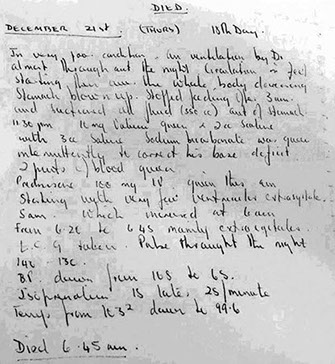 DIED.
DECEMBER 21st. (THURS) 18th Day.
In very poor condition - on ventilation by Dr
almost throughout the night. Circulation
starting from over the whole body
Stomach blown up. Stopped feeding after 3am
and suctioned all fluid out of stomach
11.30 pm 10 mg Valium given 2cc saline
with 3cc saline Sodium bicarbonate was given
intermittently to correct his base deficit
2 pints of blood given
100 mg IV given this am
Starting with very few ventricular extrasystole
5am. Which increased at 6am
From 6.20 to 6.45 mainly extrasystoles.
E.C.G taken. Pulse throughout the night
140 - 130.
BP down from 105 to 65.
Isoprenaline 15 later 25/minute
Temp from 103² down to 99.6
Died 6.45 am.